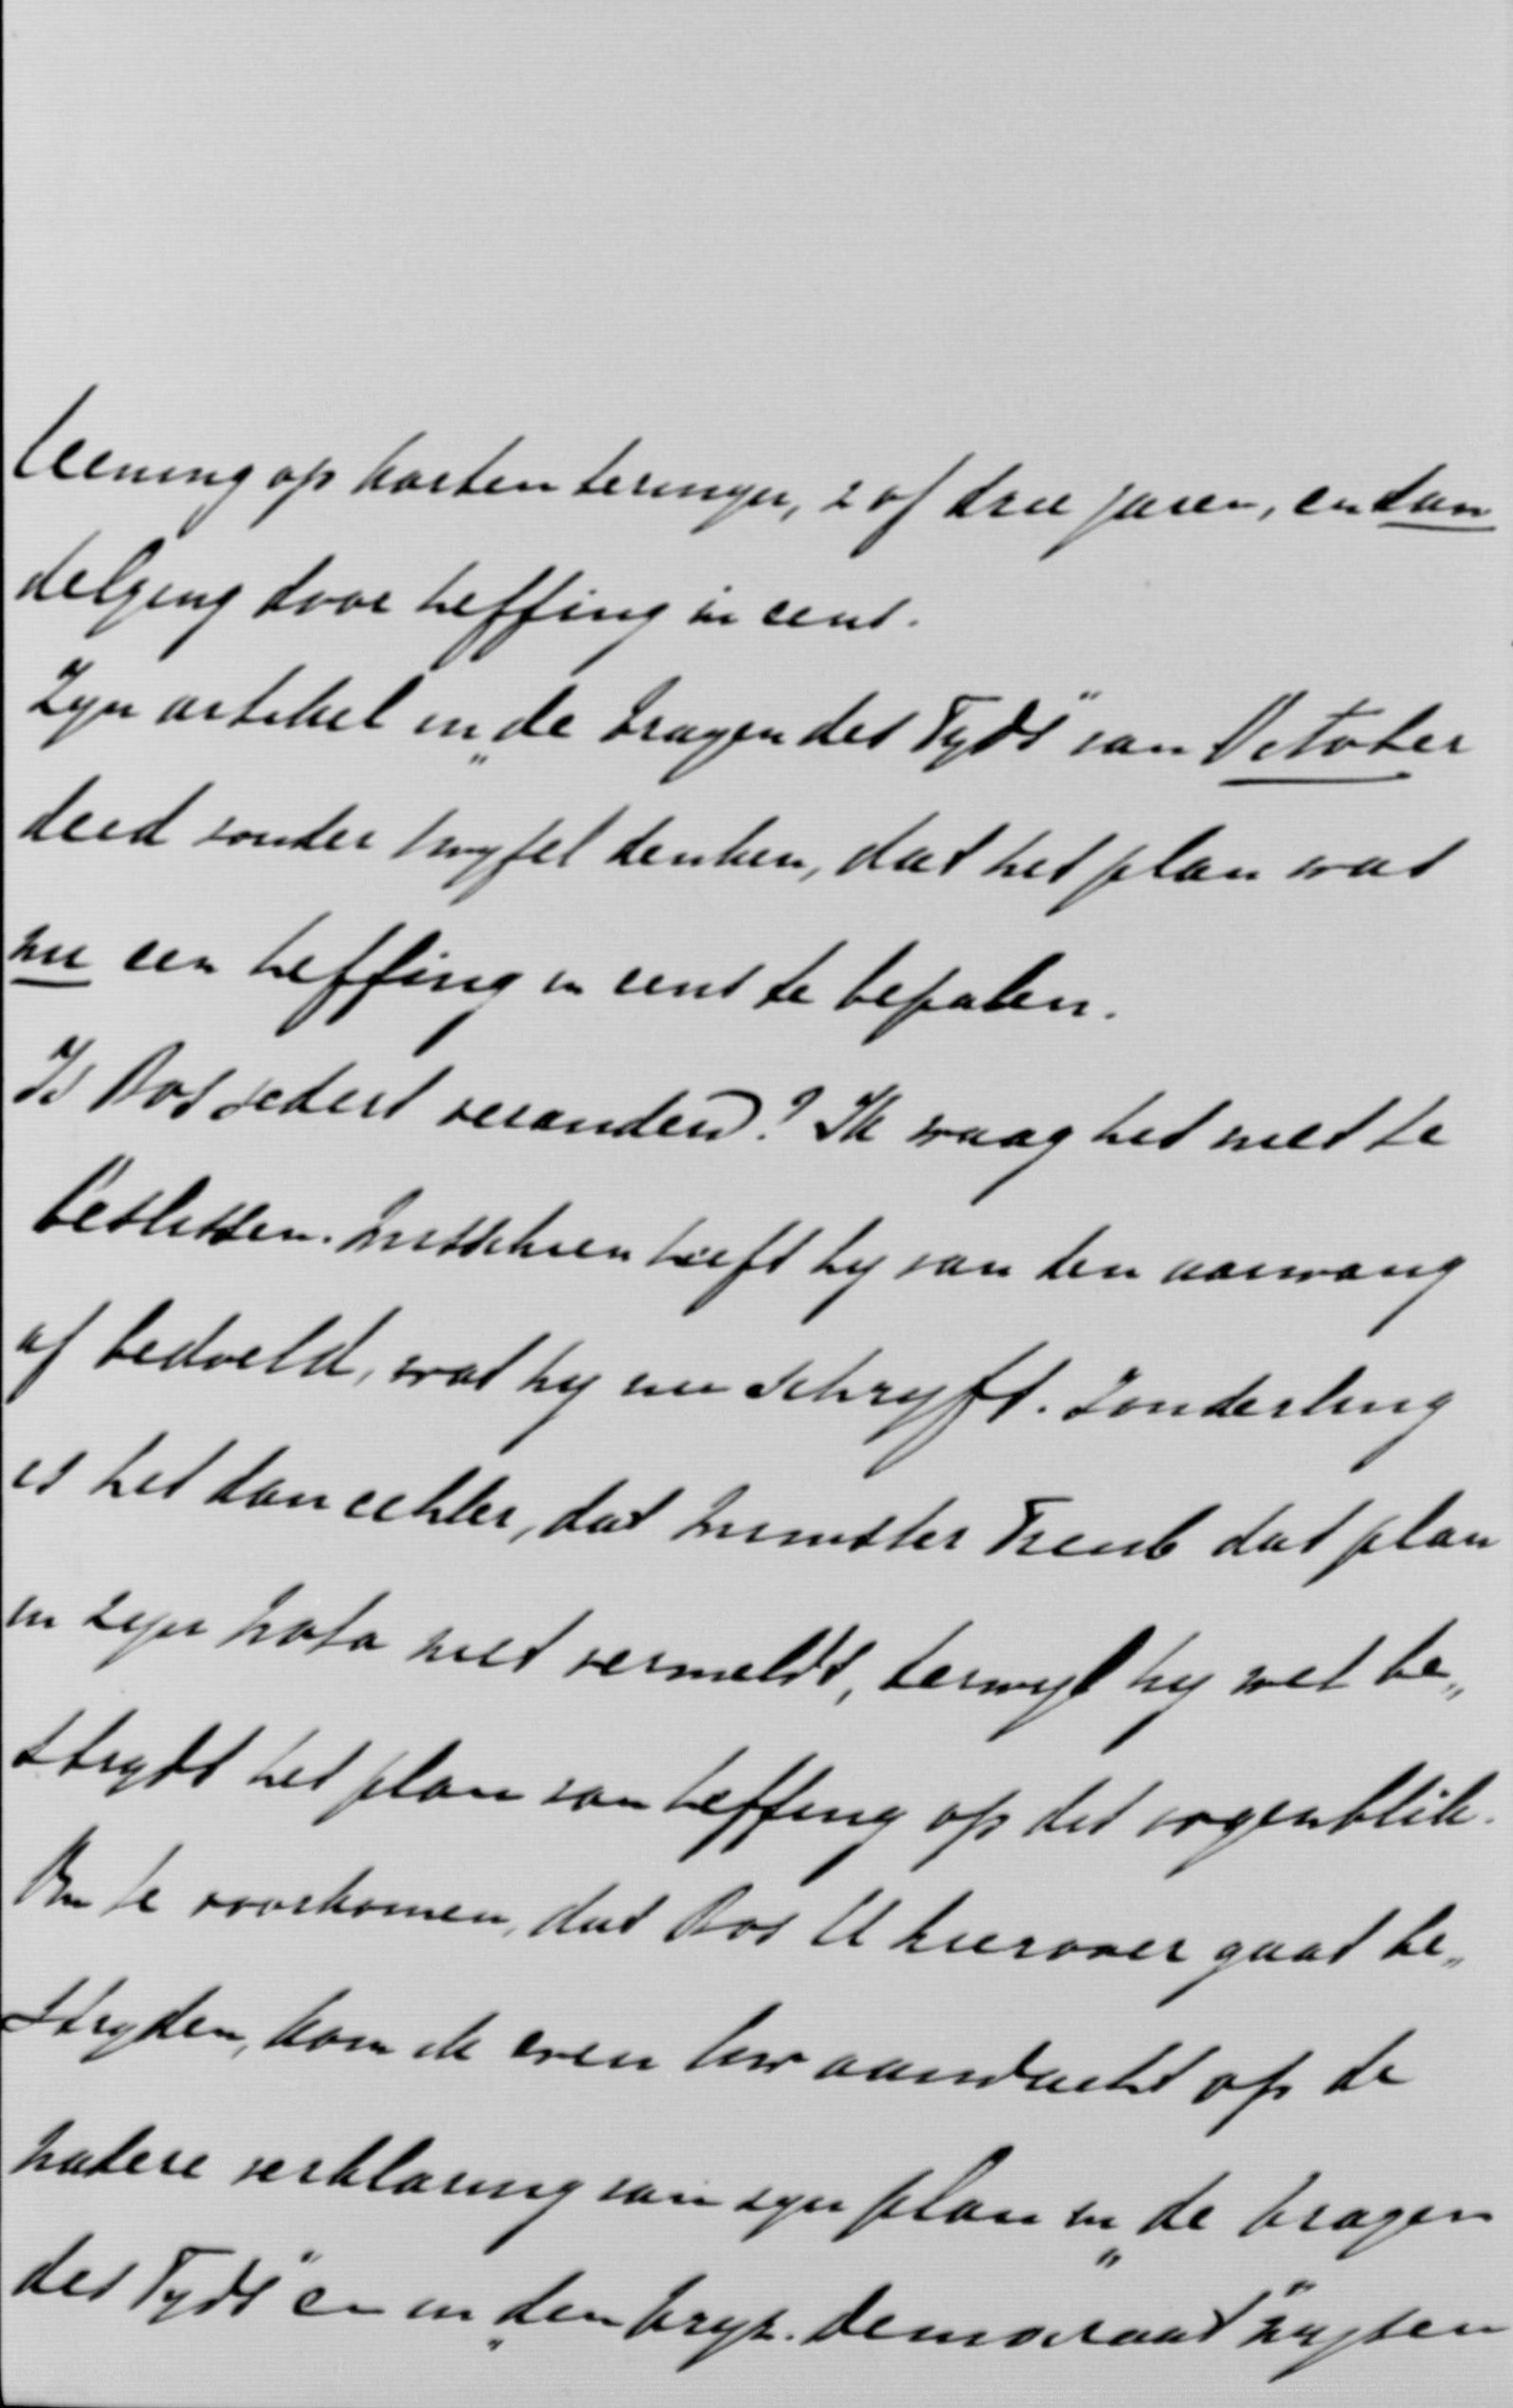 leening op korten termijn, 2 of drie jaren, en dan
delging door heffing in eens.
Zijn artikel in „de Vragen des Tyds" van October
deed zonder twyfel denken, dat het plan was
nu een heffing in eens te bepalen.
Is Bos sedert veranderd? Ik waag het niet te
beslissen. Misschien heeft hy van den aanvang
af bedoeld, wat hy nu schryft. Zonderling
is het dan echter, dat Minister Treub dat plan
in zyn Nota niet vermeldt, terwyl hy wel be„
strydt het plan van heffing op dit oogenblik.
Om te voorkomen, dat Bos U hierover gaat be„
stryden, kom ik even Uw aandacht op de
nadere verklaring van zyn plan in „de Vragen
des Tyds" en in „den Vryz. Democraat"